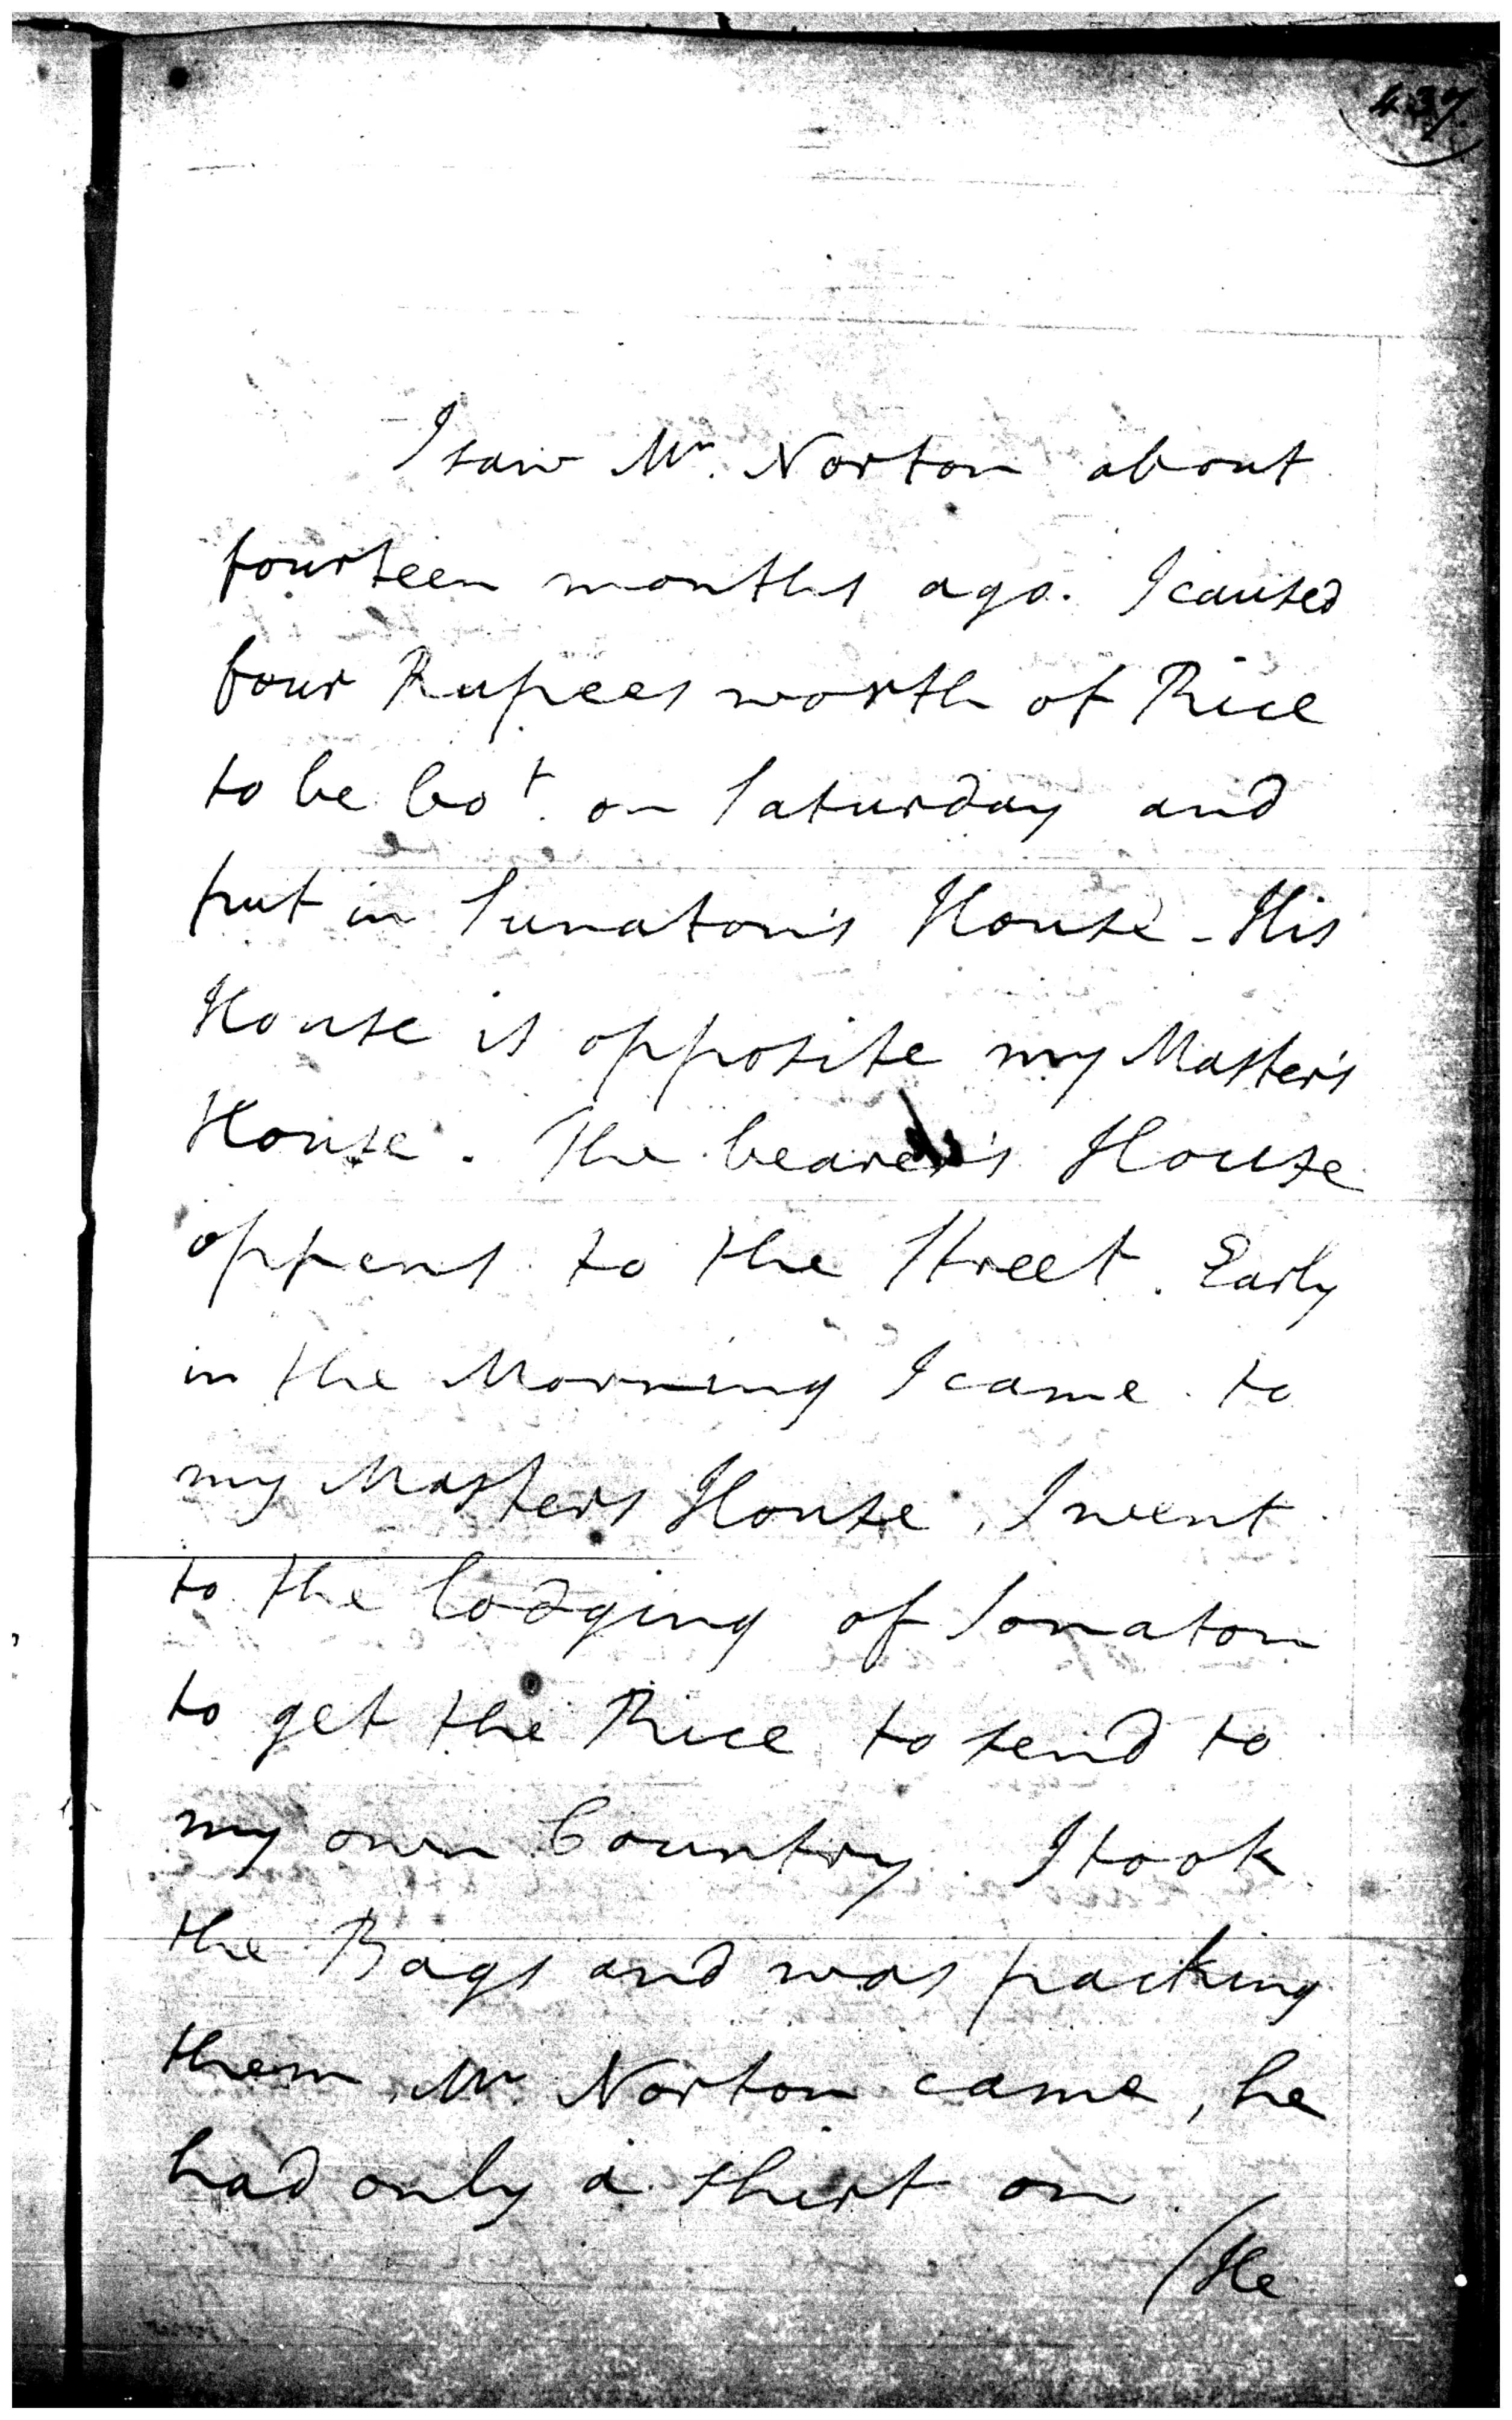 437.
I saw Mr. Norton about
fourteen months ago. I caused
four Rupees worth of Rice
to be bot. on Saturday and
put in Sunaton's House - His
House is opposite my Master's
House. The bearer's House
oppens to the Street. Early
in the Morning I came to
my Masters House, I went
to the lodging of Sonaton
to get the Rice to send to
my own Country. I took
the Bags and was packing
them Mr. Norton came, he
had only a shirt on.
(He